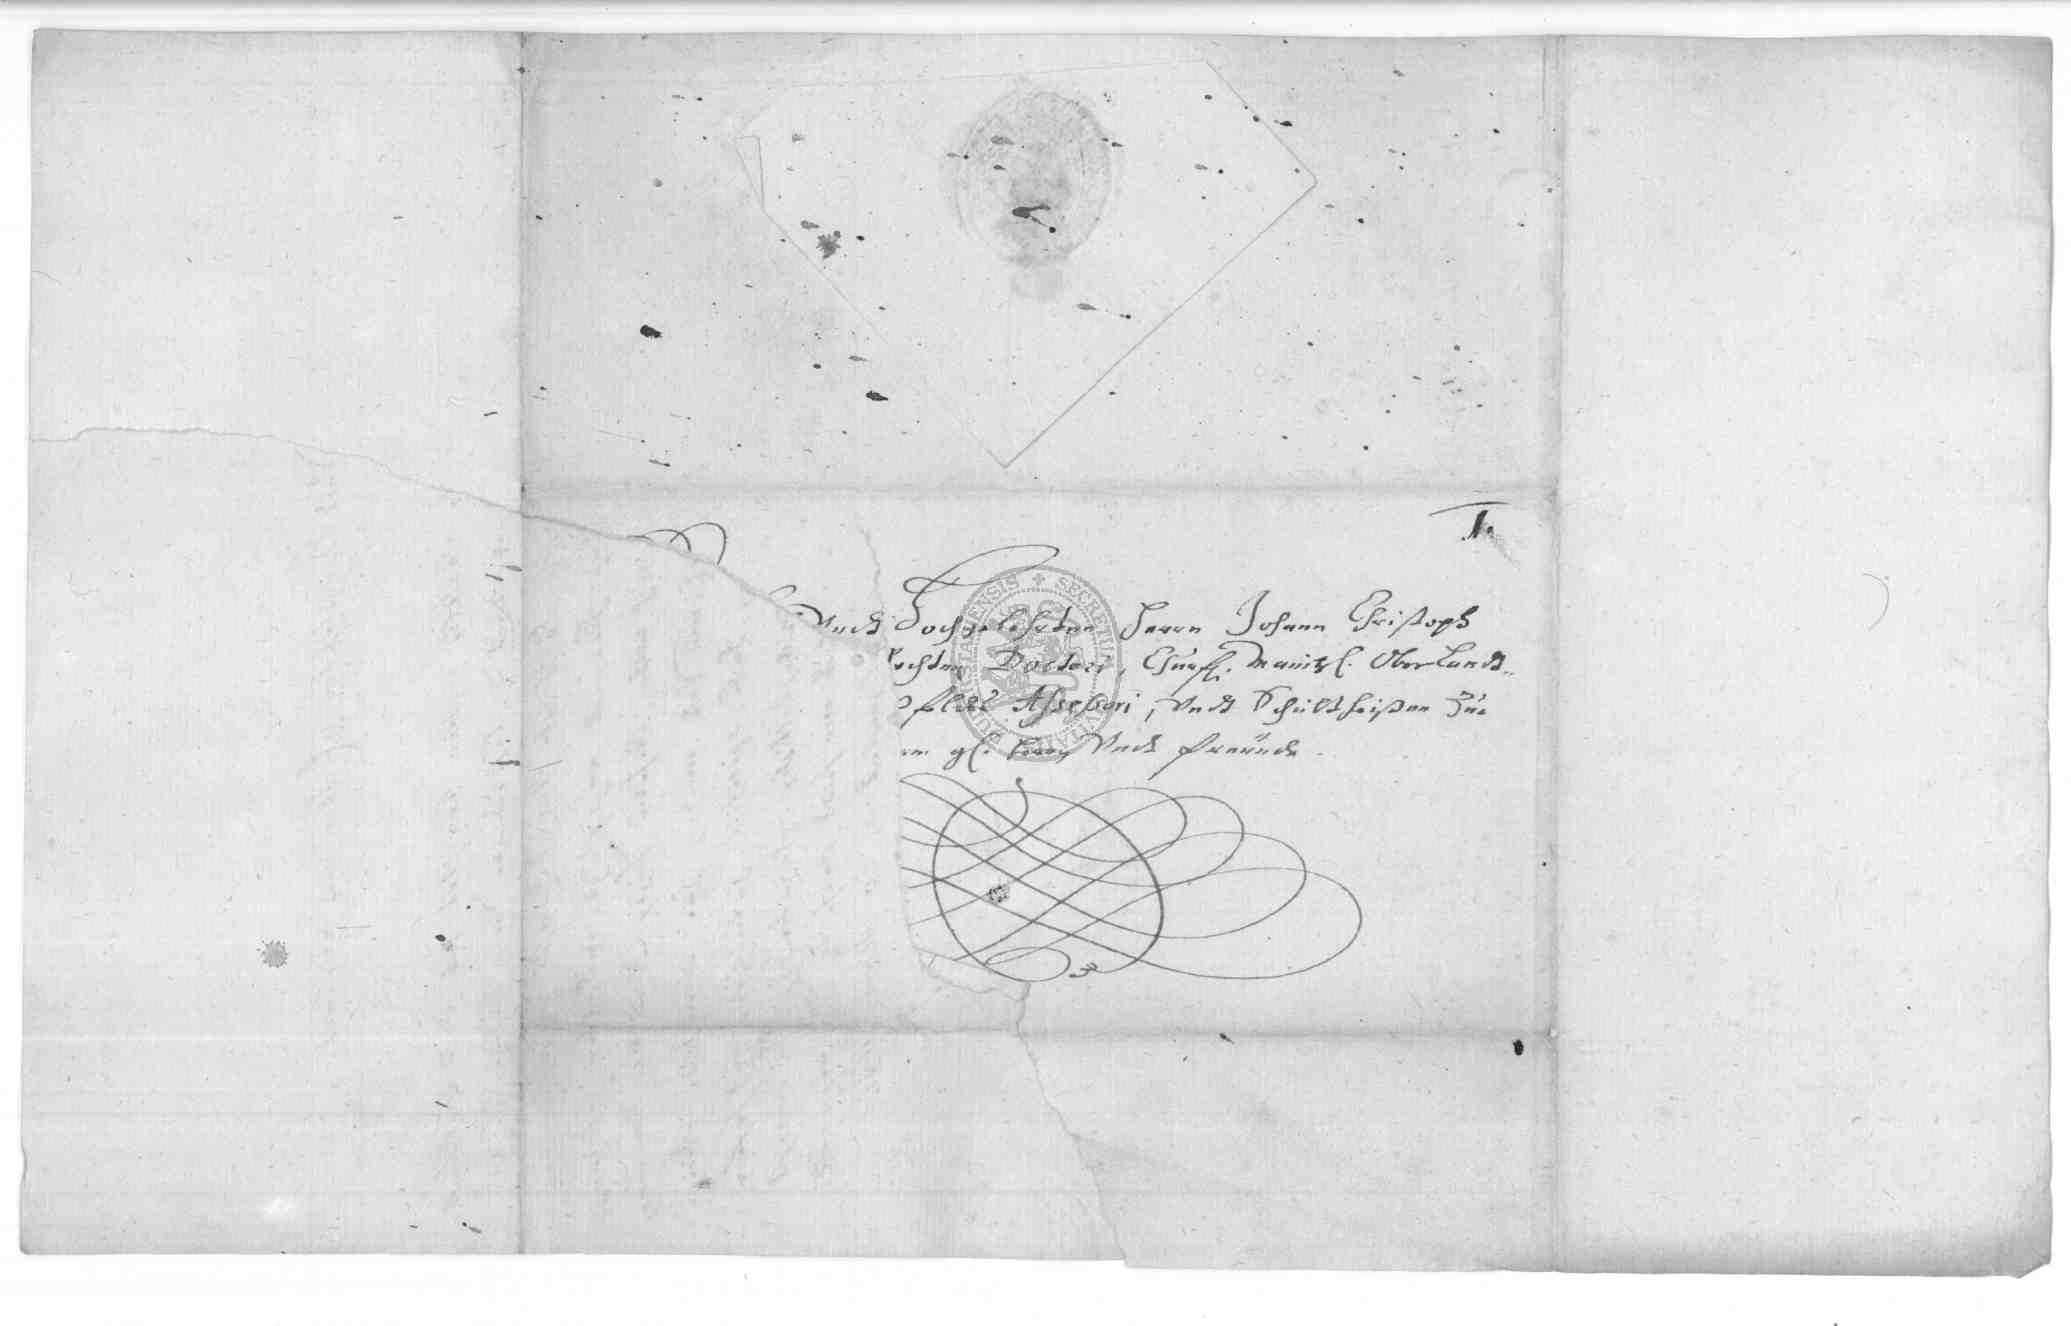 I.
Undt Hochgelehrten Herrn Johann Christoph
Rechten Doctori, Churfl. Maintzl. Ober Landt-
Assessori, Undt Schultheißen Zue
gl. Herrn Undt freündt.